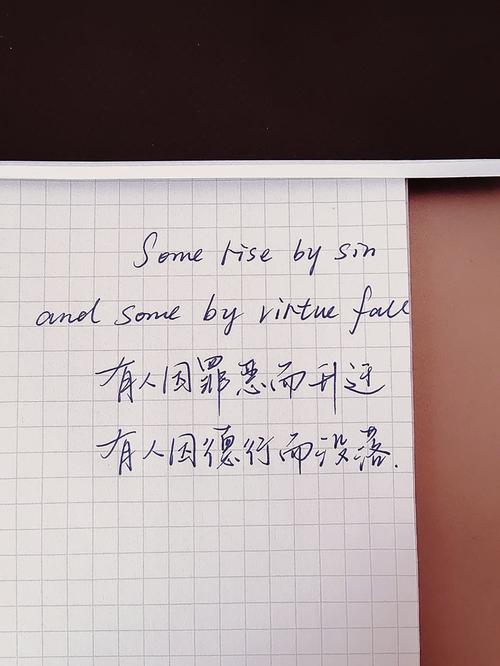 Some rise by sin
and some by virtue fall
有人因罪恶而升迁
有人因德行而没落.